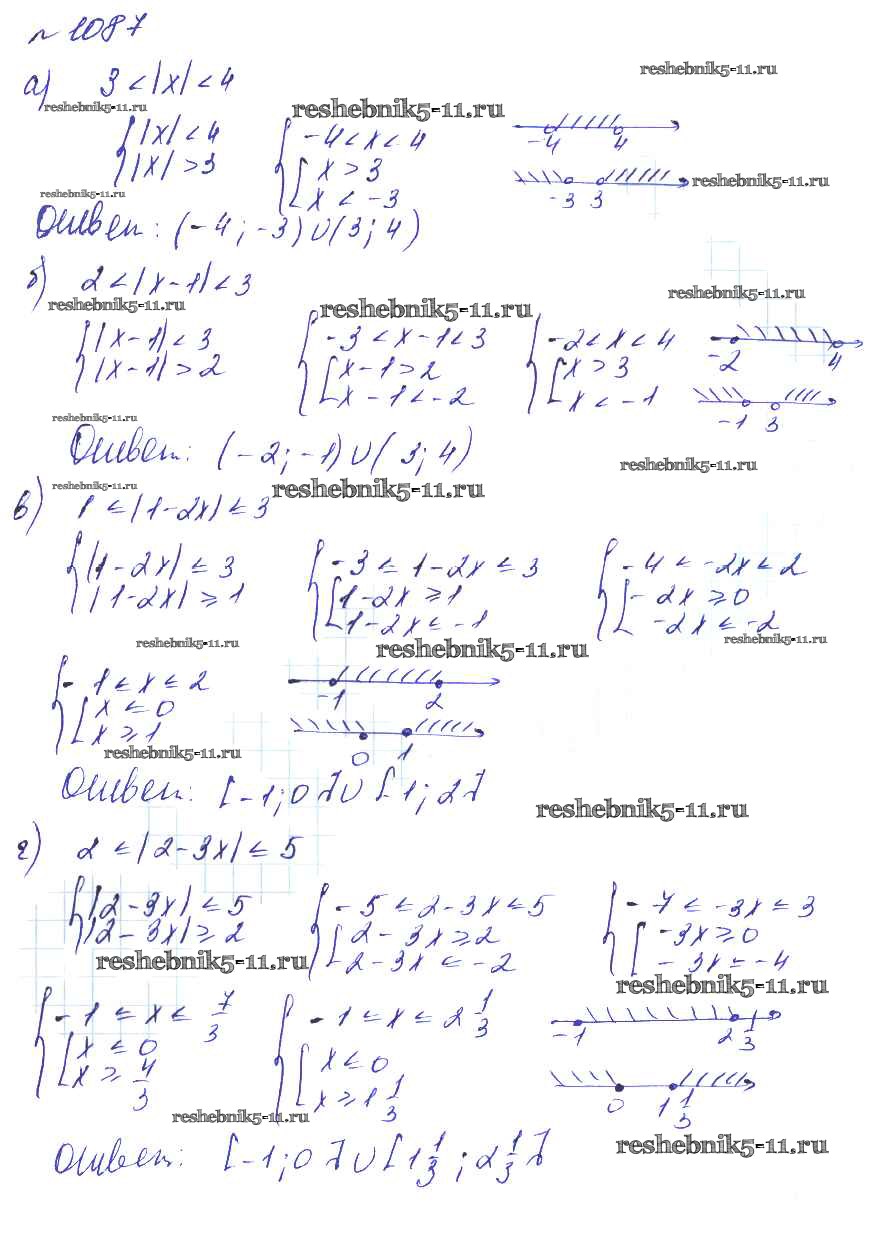 № 1087
reshebnik5-11.ru
а) 3 < |x| < 4
reshebnik5-11.ru reshebnik5-11.ru
{ |x| < 4 { -4 < x < 4 -4 4
{ |x| > 3 [ x > 3 reshebnik5-11.ru
reshebnik5-11.ru [ x < -3 -3 3
Ответ: (-4; -3) ∪ (3; 4)
б) 2 < |x-1| < 3
reshebnik5-11.ru reshebnik5-11.ru reshebnik5-11.ru
{ |x-1| < 3 { -3 < x-1 < 3 { -2 < x < 4 -2 4
{ |x-1| > 2 [ x-1 > 2 [ x > 3
[ x-1 < -2 [ x < -1 -1 3
reshebnik5-11.ru
Ответ: (-2; -1) ∪ (3; 4)
reshebnik5-11.ru
reshebnik5-11.ru reshebnik5-11.ru
в) 1 ≤ |1-2x| ≤ 3
{ |1-2x| ≤ 3 { -3 ≤ 1-2x ≤ 3 { -4 ≤ -2x ≤ 2
{ |1-2x| ≥ 1 [ 1-2x ≥ 1 [ -2x ≥ 0
[ 1-2x ≤ -1 [ -2x ≤ -2
reshebnik5-11.ru reshebnik5-11.ru reshebnik5-11.ru
{ -1 ≤ x ≤ 2 -1 2
[ x ≤ 0
[ x ≥ 1 0 1
reshebnik5-11.ru
Ответ: [-1; 0] ∪ [1; 2]
reshebnik5-11.ru
г) 2 ≤ |2-3x| ≤ 5
{ |2-3x| ≤ 5 { -5 ≤ 2-3x ≤ 5 { -7 ≤ -3x ≤ 3
{ |2-3x| ≥ 2 [ 2-3x ≥ 2 [ -3x ≥ 0
reshebnik5-11.ru [ 2-3x ≤ -2 [ -3x ≤ -4
reshebnik5-11.ru
{ -1 ≤ x ≤ 7/3 { -1 ≤ x ≤ 2 1/3 -1 2 1/3
[ x ≤ 0 [ x ≤ 0
[ x ≥ 4/3 [ x ≥ 1 1/3 0 1 1/3
reshebnik5-11.ru
reshebnik5-11.ru
Ответ: [-1; 0] ∪ [1 1/3; 2 1/3]